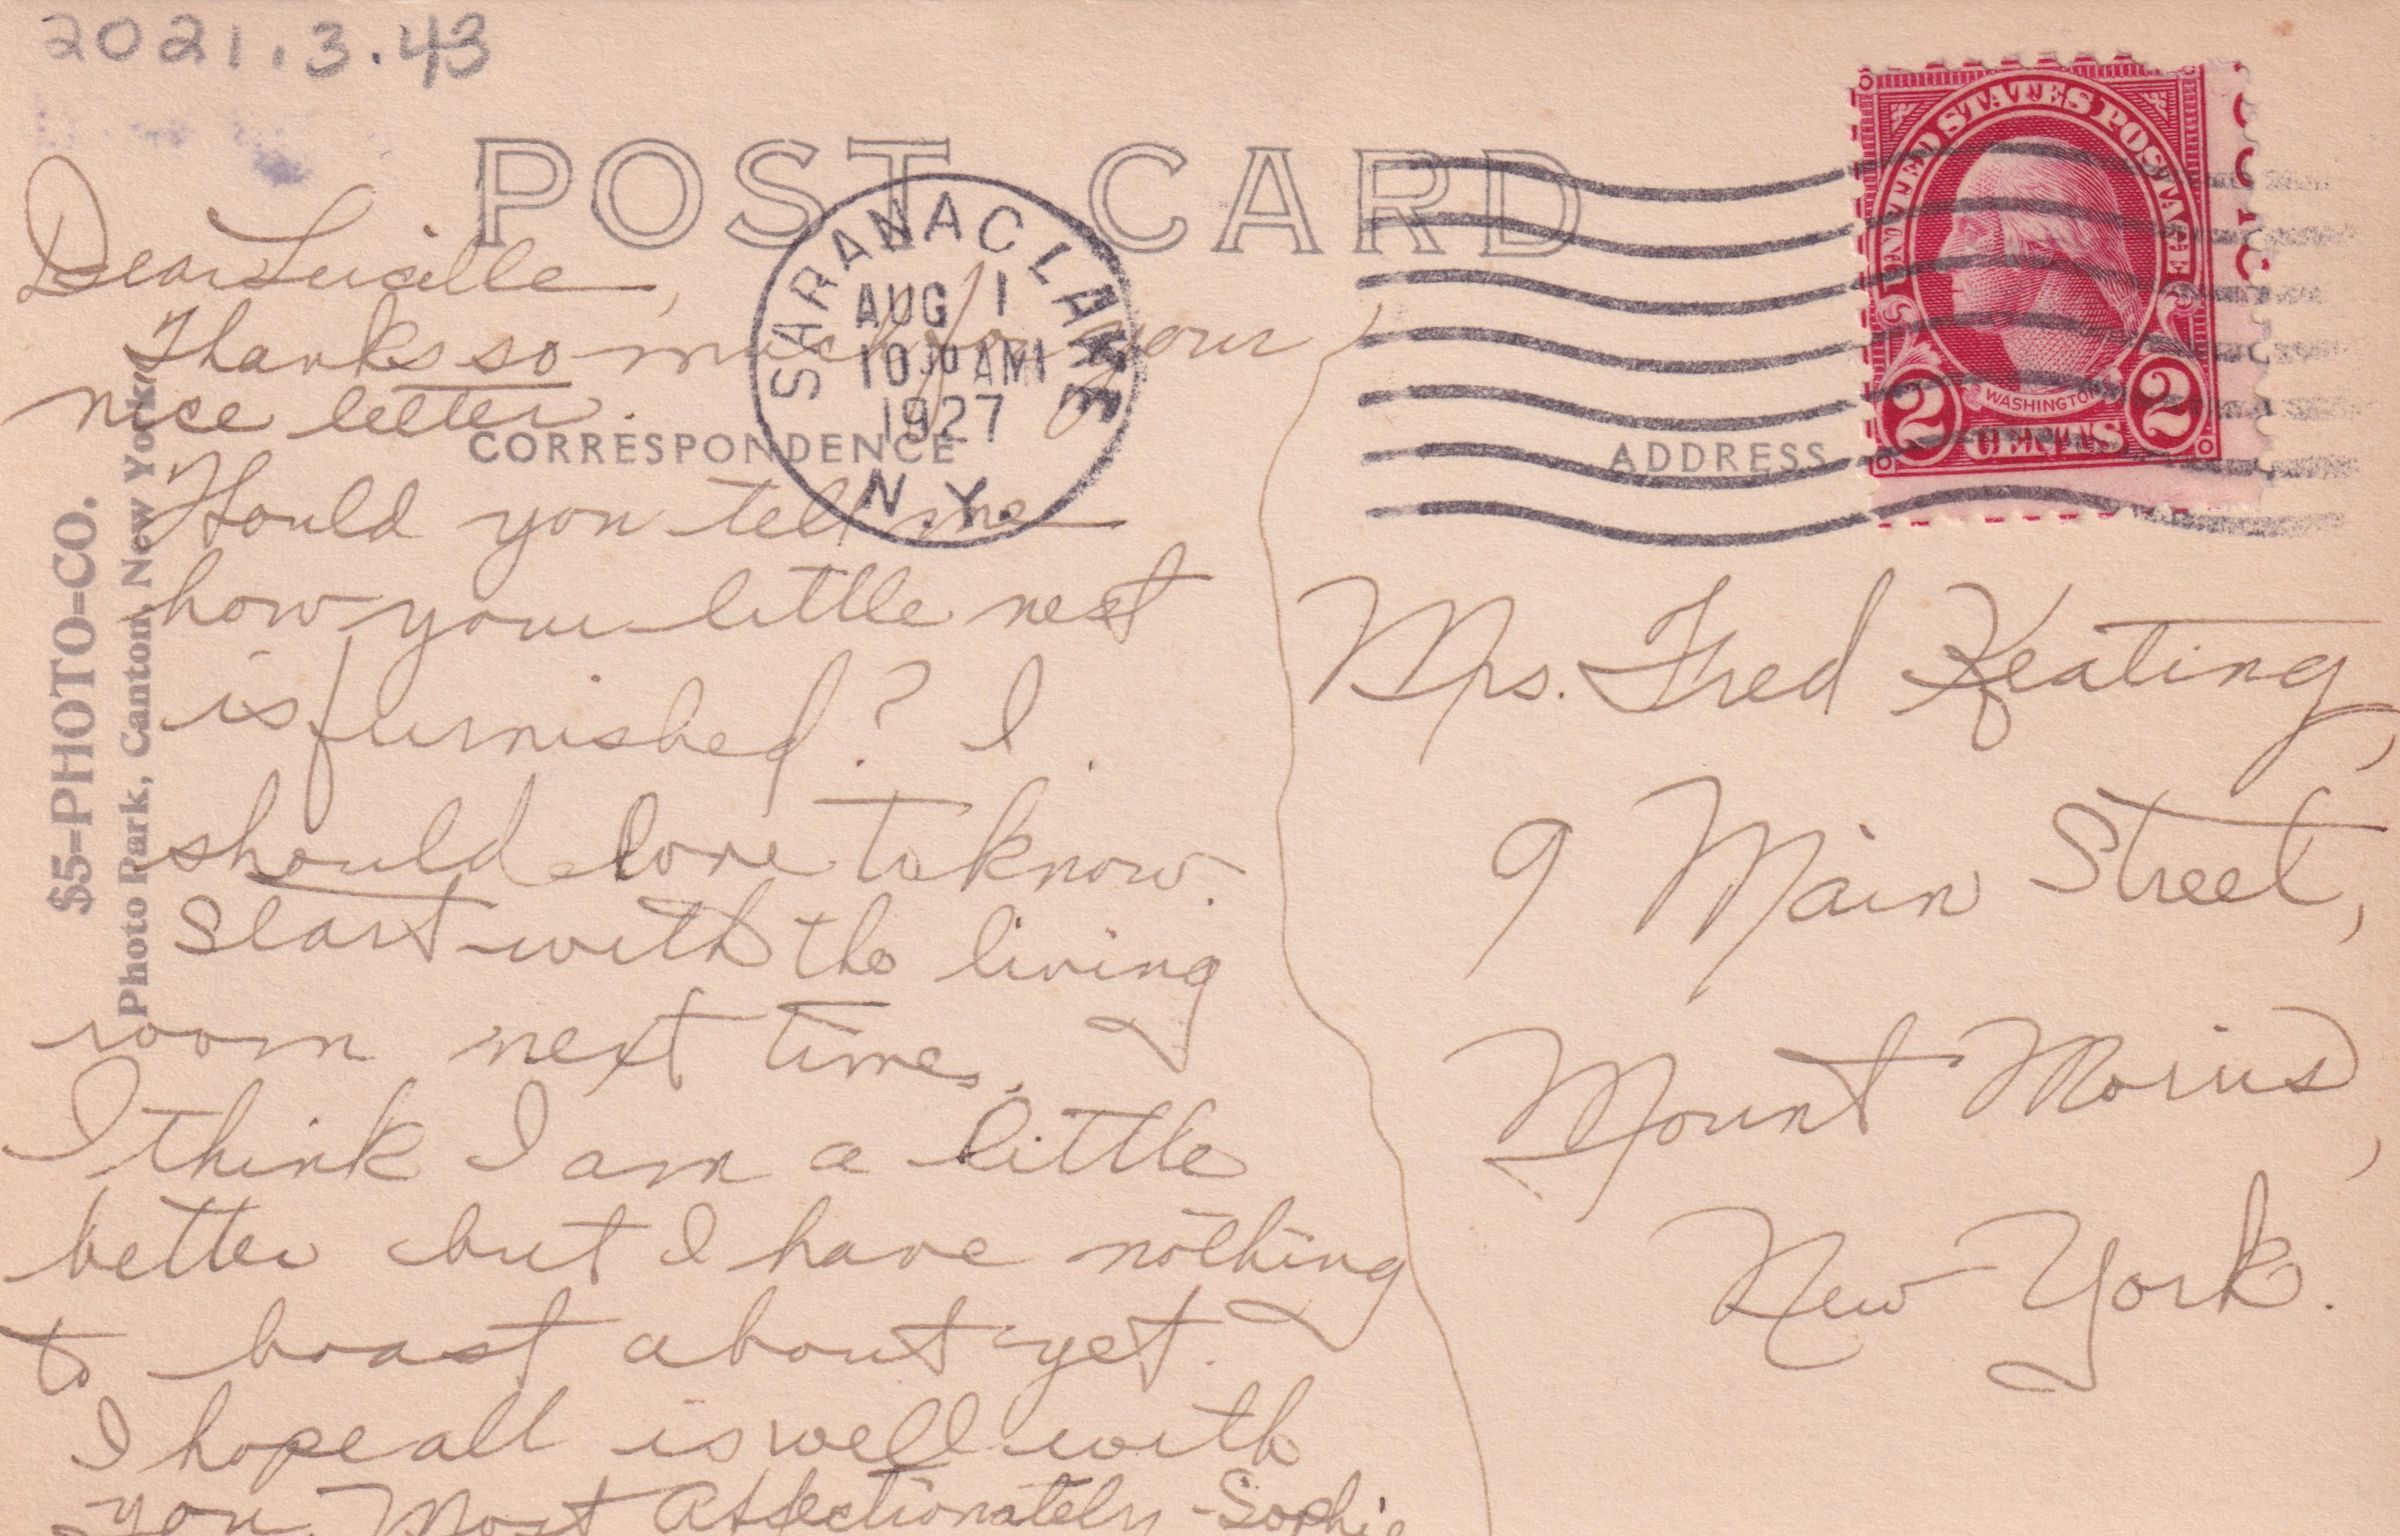 2021.3.43
POST CARD
SARANAC LAKE
AUG 1
10 30 AM
1927
N.Y.
UNITED STATES POSTAGE
WASHINGTON
2 CENTS 2
CORRESPONDENCE
ADDRESS
$5-PHOTO-CO.
Photo Park, Canton, New York
Dear Lucille,
Thanks so much for your
nice letter.
Would you tell me
how your little nest
is furnished? I
should love to know.
Start with the living
room next time.
I think I am a little
better but I have nothing
to boast about yet.
I hope all is well with
you. Most Affectionately - Sophie
Mrs. Fred Keating,
9 Main Street,
Mount Morris,
New York.